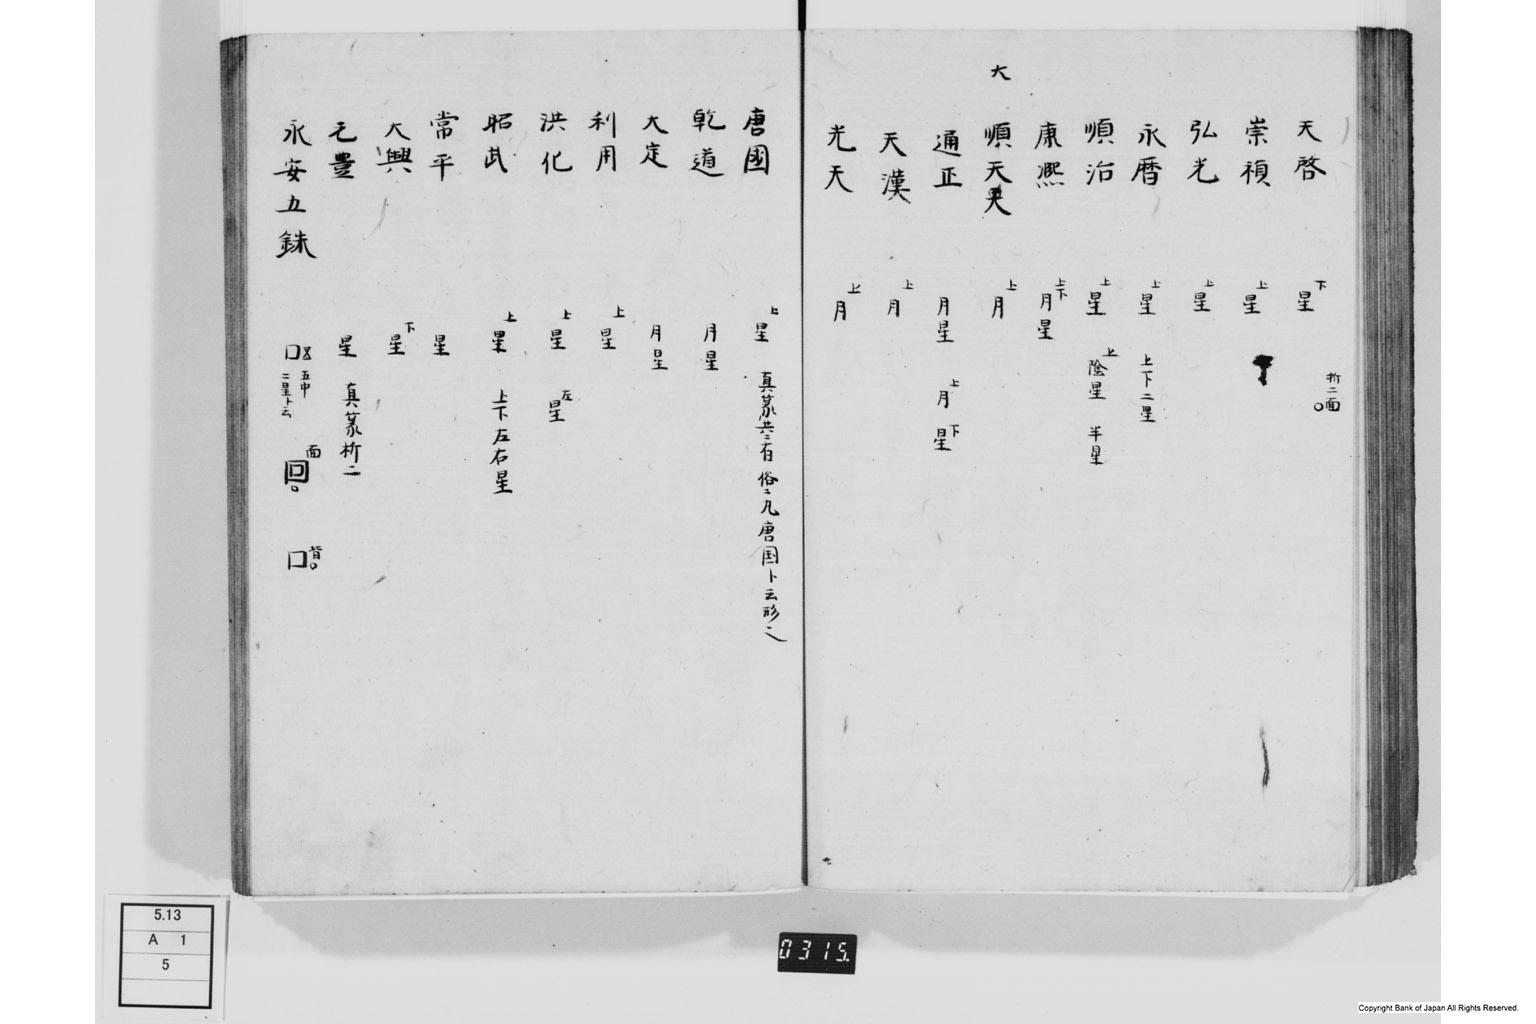 天啓 下星 折二面
崇禎 上星
弘光 上星
永暦 上星 上下二星
順治 上星 上陰星 半星
康熈 上下月星
大順天 上月
通正 月星 上月下星
天漢 上月
光天 上月
唐國 上星 真篆共ニ有 俗ニ九唐国ト云
乾道 月星
大定 月星
利用 上星
洪化 上星 左星
昭武 上星 上下左右星
常平 星
大興 下星
元豊 星 真篆折二
永安五銖 五中二星ト云 面 背
5.13
A 1
5
0315.
Copyright Bank of Japan All Rights Reserved.